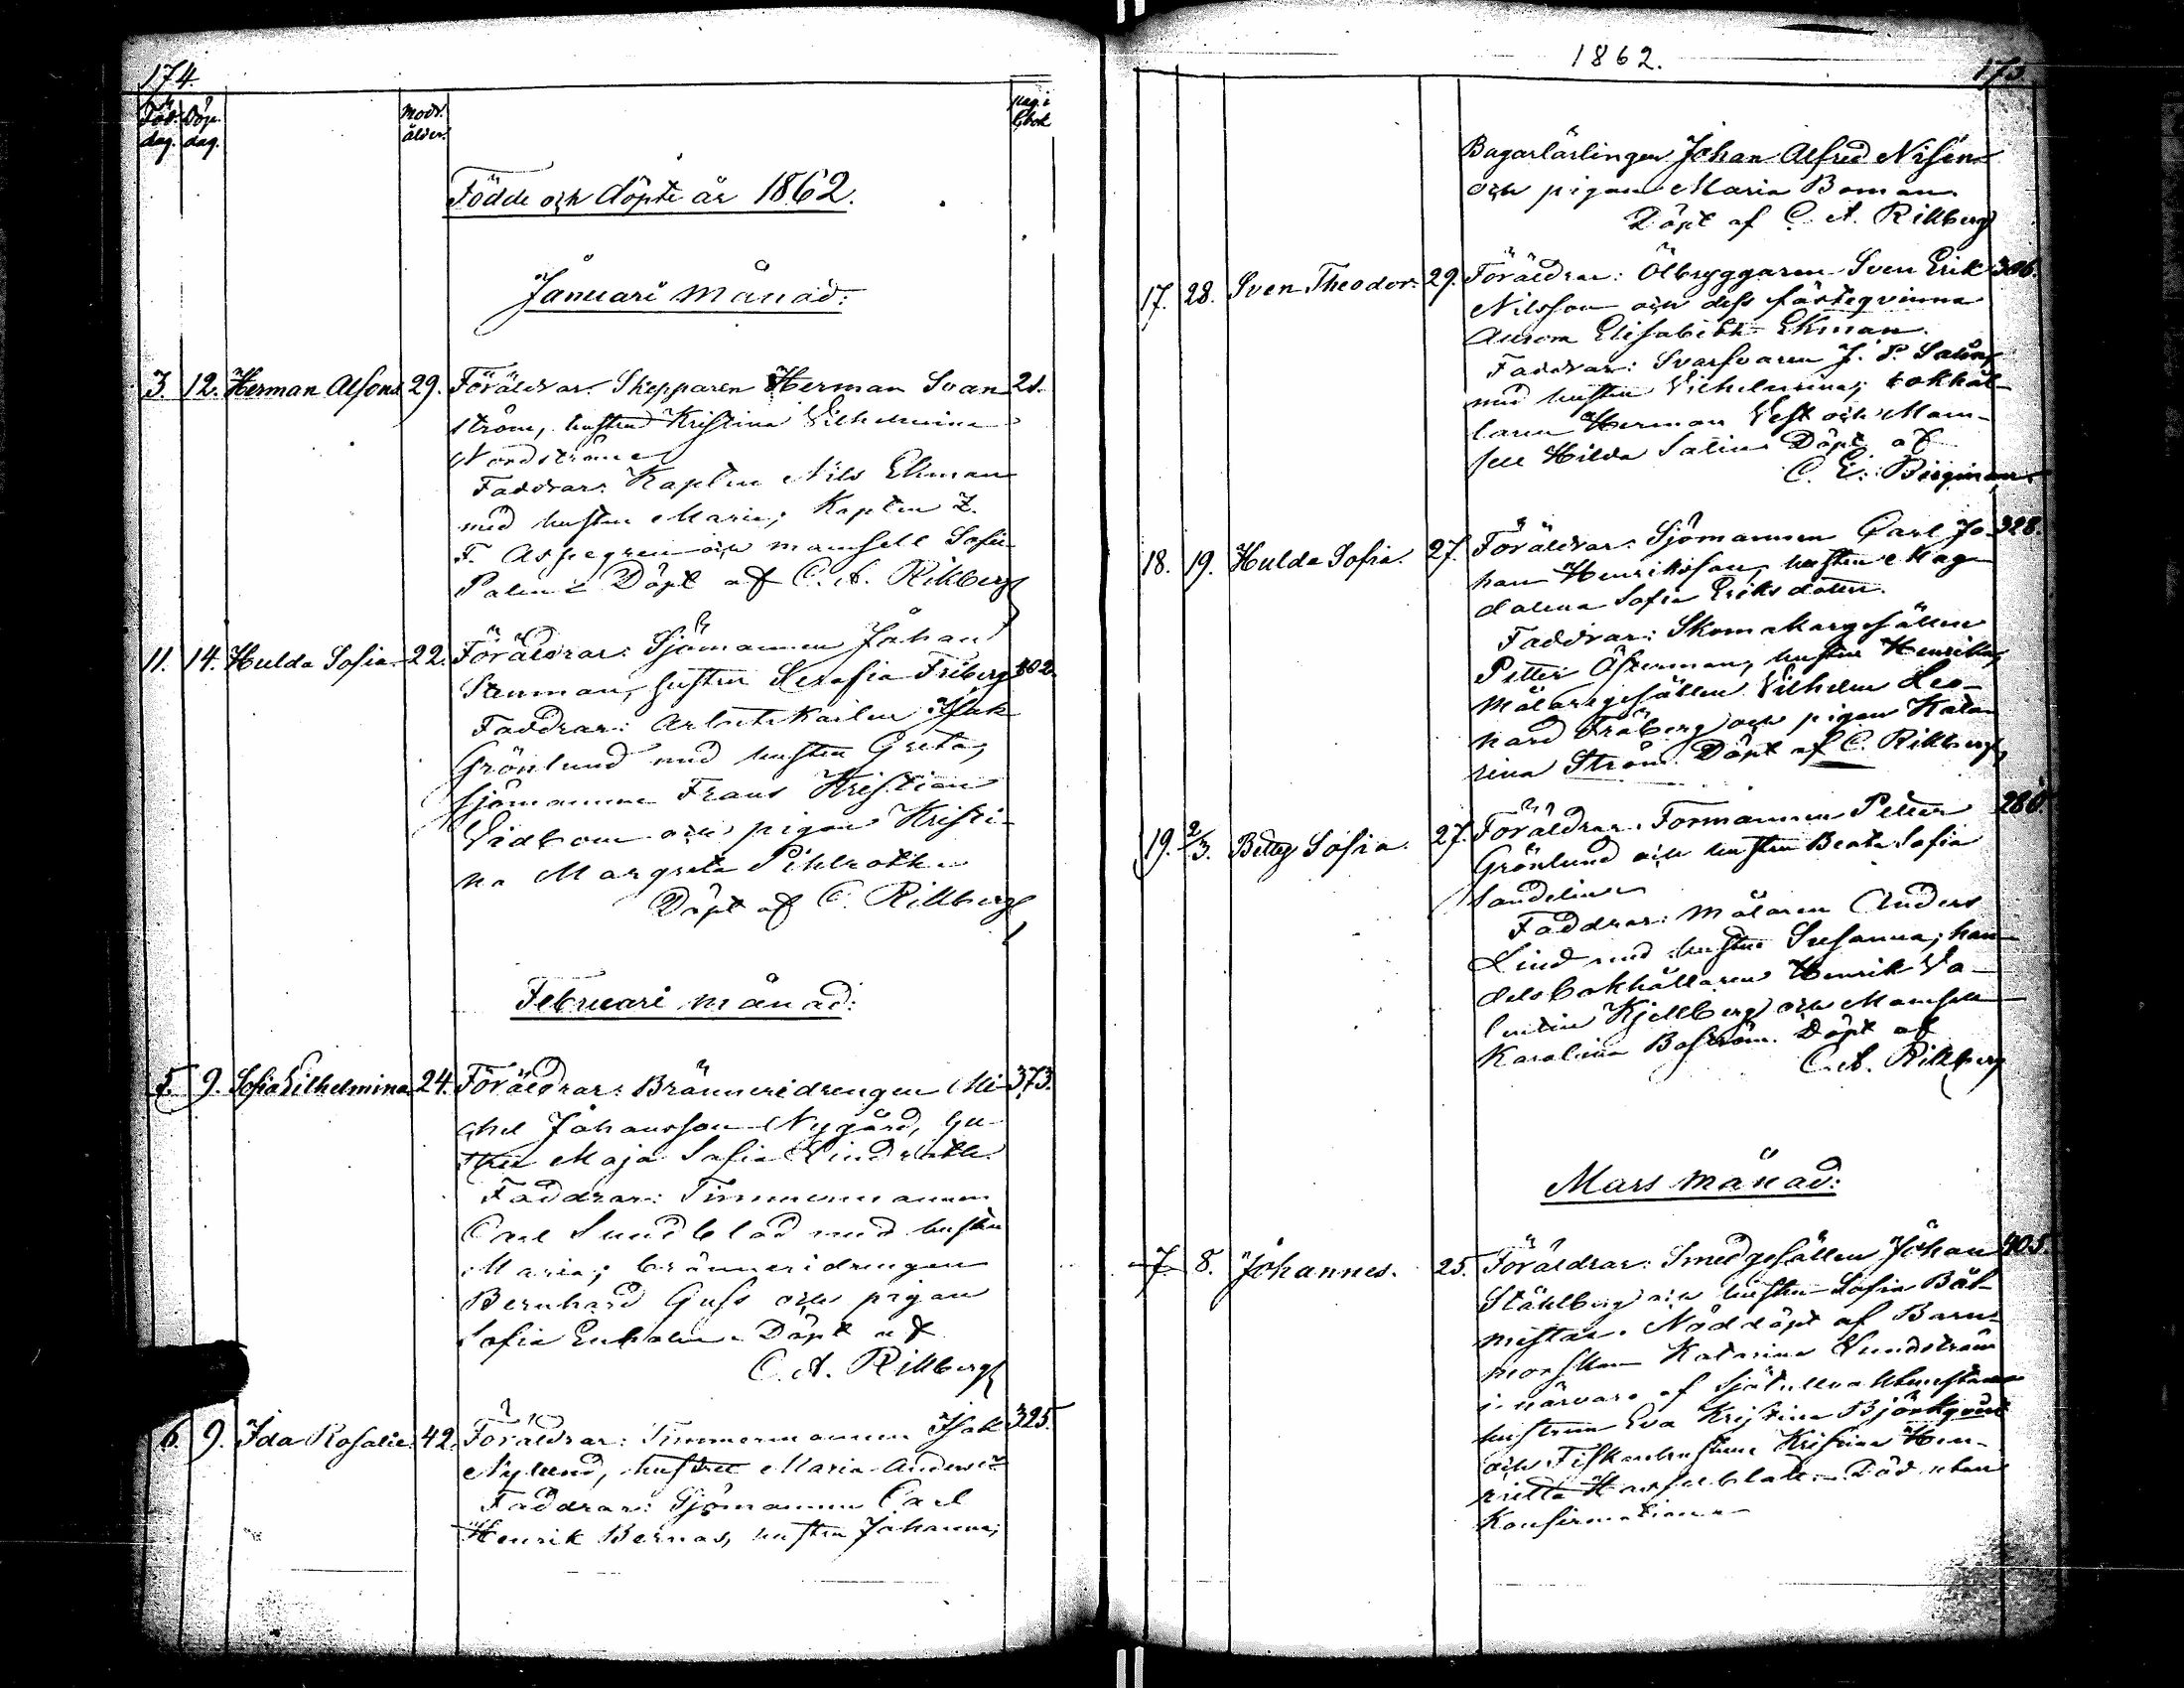 174.
Föd. Döp. Modr. pag. i
dag. dag. ålder. kbok
Födde och döpte år 1862.
Januari månad:
3. 12. Herman Alfons 29. Föräldrar: Skepparen Herman Svan- 21.
ström, hustrun Kristina Vilhelmina
Nordström
Faddrar: Kapten Nils Ekman
med hustru Maria; Kapten Z.
F. Aspegren och mamsell Sofia
Palin. Döpt af C. A. Rikberg
11. 14. Hulda Sofia 22. Föräldrar: Sjömannen Johan
Stenman, hustru Serafia Friberg 402.
Faddrar: Arbetskarlen Isak
Grönlund med hustru Greta,
Sjömannen Frans Kristian
Vidbom och pigan Kristi-
na Margreta Pihlrotk
Döpt af C. Rikberg
Februari månad:
5. 9. Sofia Vilhelmina 24. Föräldrar: Bränneridrengen Mi- 373.
chel Johansson Nygård, hu-
stru Maja Sofia
Faddrar: Timmermannen
Carl Sundblad med hustru
Maria; bränneridrengen
Bernhard Guss och pigan
Sofia Enholm. Döpt af
C. A. Rikberg
6. 9. Ida Rosalie 42. Föräldrar: Timmermannen Isak 325.
Nylund, hustru Maria Anders
Faddrar: Sjömannen Carl
Henrik Bernas, hustru Johanna;
1862. 175.
Bagarlärlingen Johan Alfred Nisén
och pigan Maria Boman.
Döpt af C. A. Rikberg
17. 28. Sven Theodor. 29. Föräldrar: Ölbryggaren Sven Erik 306.
Nilsson och dess fästeqvinna
Aurora Elisabeth Ekman.
Faddrar: Svarfvaren J. P. Salin
med hustru Vilhelmina; bokhål-
laren Herman Vest och Mam-
sell Hilda Salin. Döpt af
C. E. Bergman.
18. 19. Hulda Sofia. 27. Föräldrar: Sjömannen Carl Jo- 328.
han Henriksson, hustru Mag-
dalena Sofia Eriksdotter.
Faddrar: Skomakargesällen
Petter Österman, hustru Henrika,
Målaregesällen Vilhelm Leo-
nard Fröberg och pigan Kata-
rina Ström. Döpt af C. Rikberg
19. 2/3. Betty Sofia. 27. Föräldrar: Formannen Petter 286.
Grönlund och hustru Beata Sofia
Sandelin
Faddrar: Målaren Anders
Lind med hustru Susanna; han-
delsbokhållaren Henrik Va-
lentin Kjellberg och Mamsell
Karolina Boström. Döpt af
C. A. Rikberg
Mars månad:
7. 8. Johannes. 25. Föräldrar: Smedgesällen Johan 405.
Ståhlberg och hustru Sofia Båt-
mistar. Nöddöpt af Barn-
morskan Katarina Lundström
i närvaro af
hustrun Eva Kristina Björkqvist
och Fiskarhustrun Kristina Hen-
rietta Död utan
Konfirmation